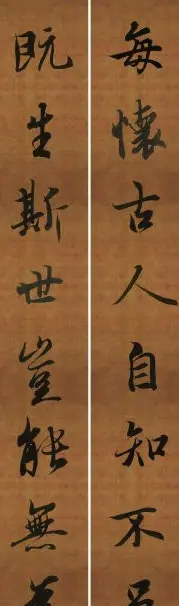 每懷古人自知不
既生斯世豈能無